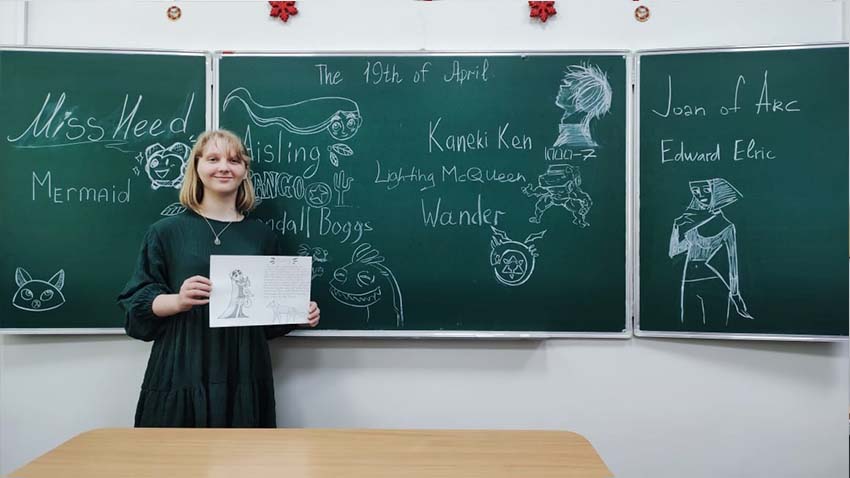 Miss Heed
Mermaid
The 19th of April
Aisling
ANGO
ndall Boggs
Kaneki Ken
1000-7
Lighting McQueen
Wander
Joan of Arc
Edward Elric